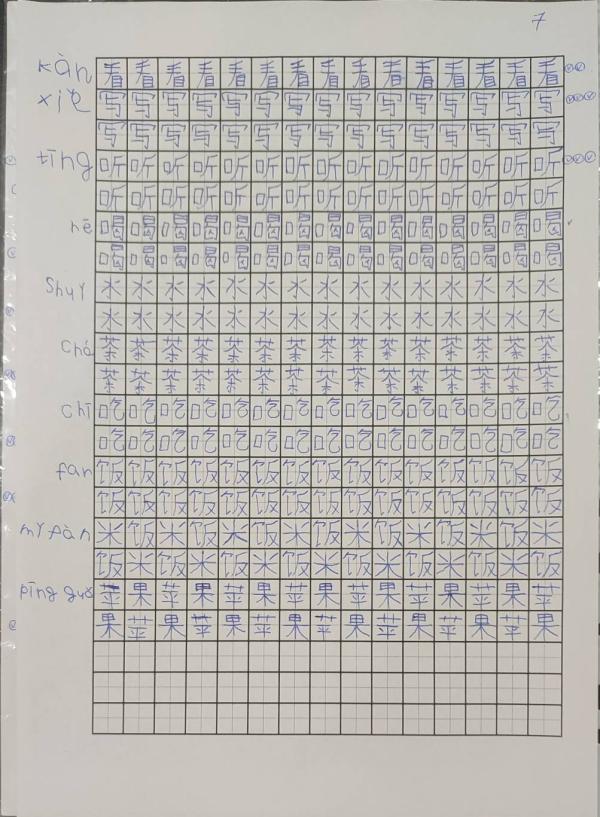 7
kàn 看看看看看看看看看看看看看看看
xiě 写写写写写写写写写写写写写写写
写写写写写写写写写写写写写写写
tīng 听听听听听听听听听听听听听听听
听听听听听听听听听听听听听听听
hē 喝喝喝喝喝喝喝喝喝喝喝喝喝喝喝
喝喝喝喝喝喝喝喝喝喝喝喝喝喝喝
Shuǐ 水水水水水水水水水水水水水水水
水水水水水水水水水水水水水水水
chá 茶茶茶茶茶茶茶茶茶茶茶茶茶茶茶
茶茶茶茶茶茶茶茶茶茶茶茶茶茶茶
chī 吃吃吃吃吃吃吃吃吃吃吃吃吃吃吃
吃吃吃吃吃吃吃吃吃吃吃吃吃吃吃
fan 饭饭饭饭饭饭饭饭饭饭饭饭饭饭饭
饭饭饭饭饭饭饭饭饭饭饭饭饭饭饭
mǐ fàn 米饭米饭米饭米饭米饭米饭米饭米
饭米饭米饭米饭米饭米饭米饭米饭
pīng guǒ 苹果苹果苹果苹果苹果苹果苹果苹
果苹果苹果苹果苹果苹果苹果苹果